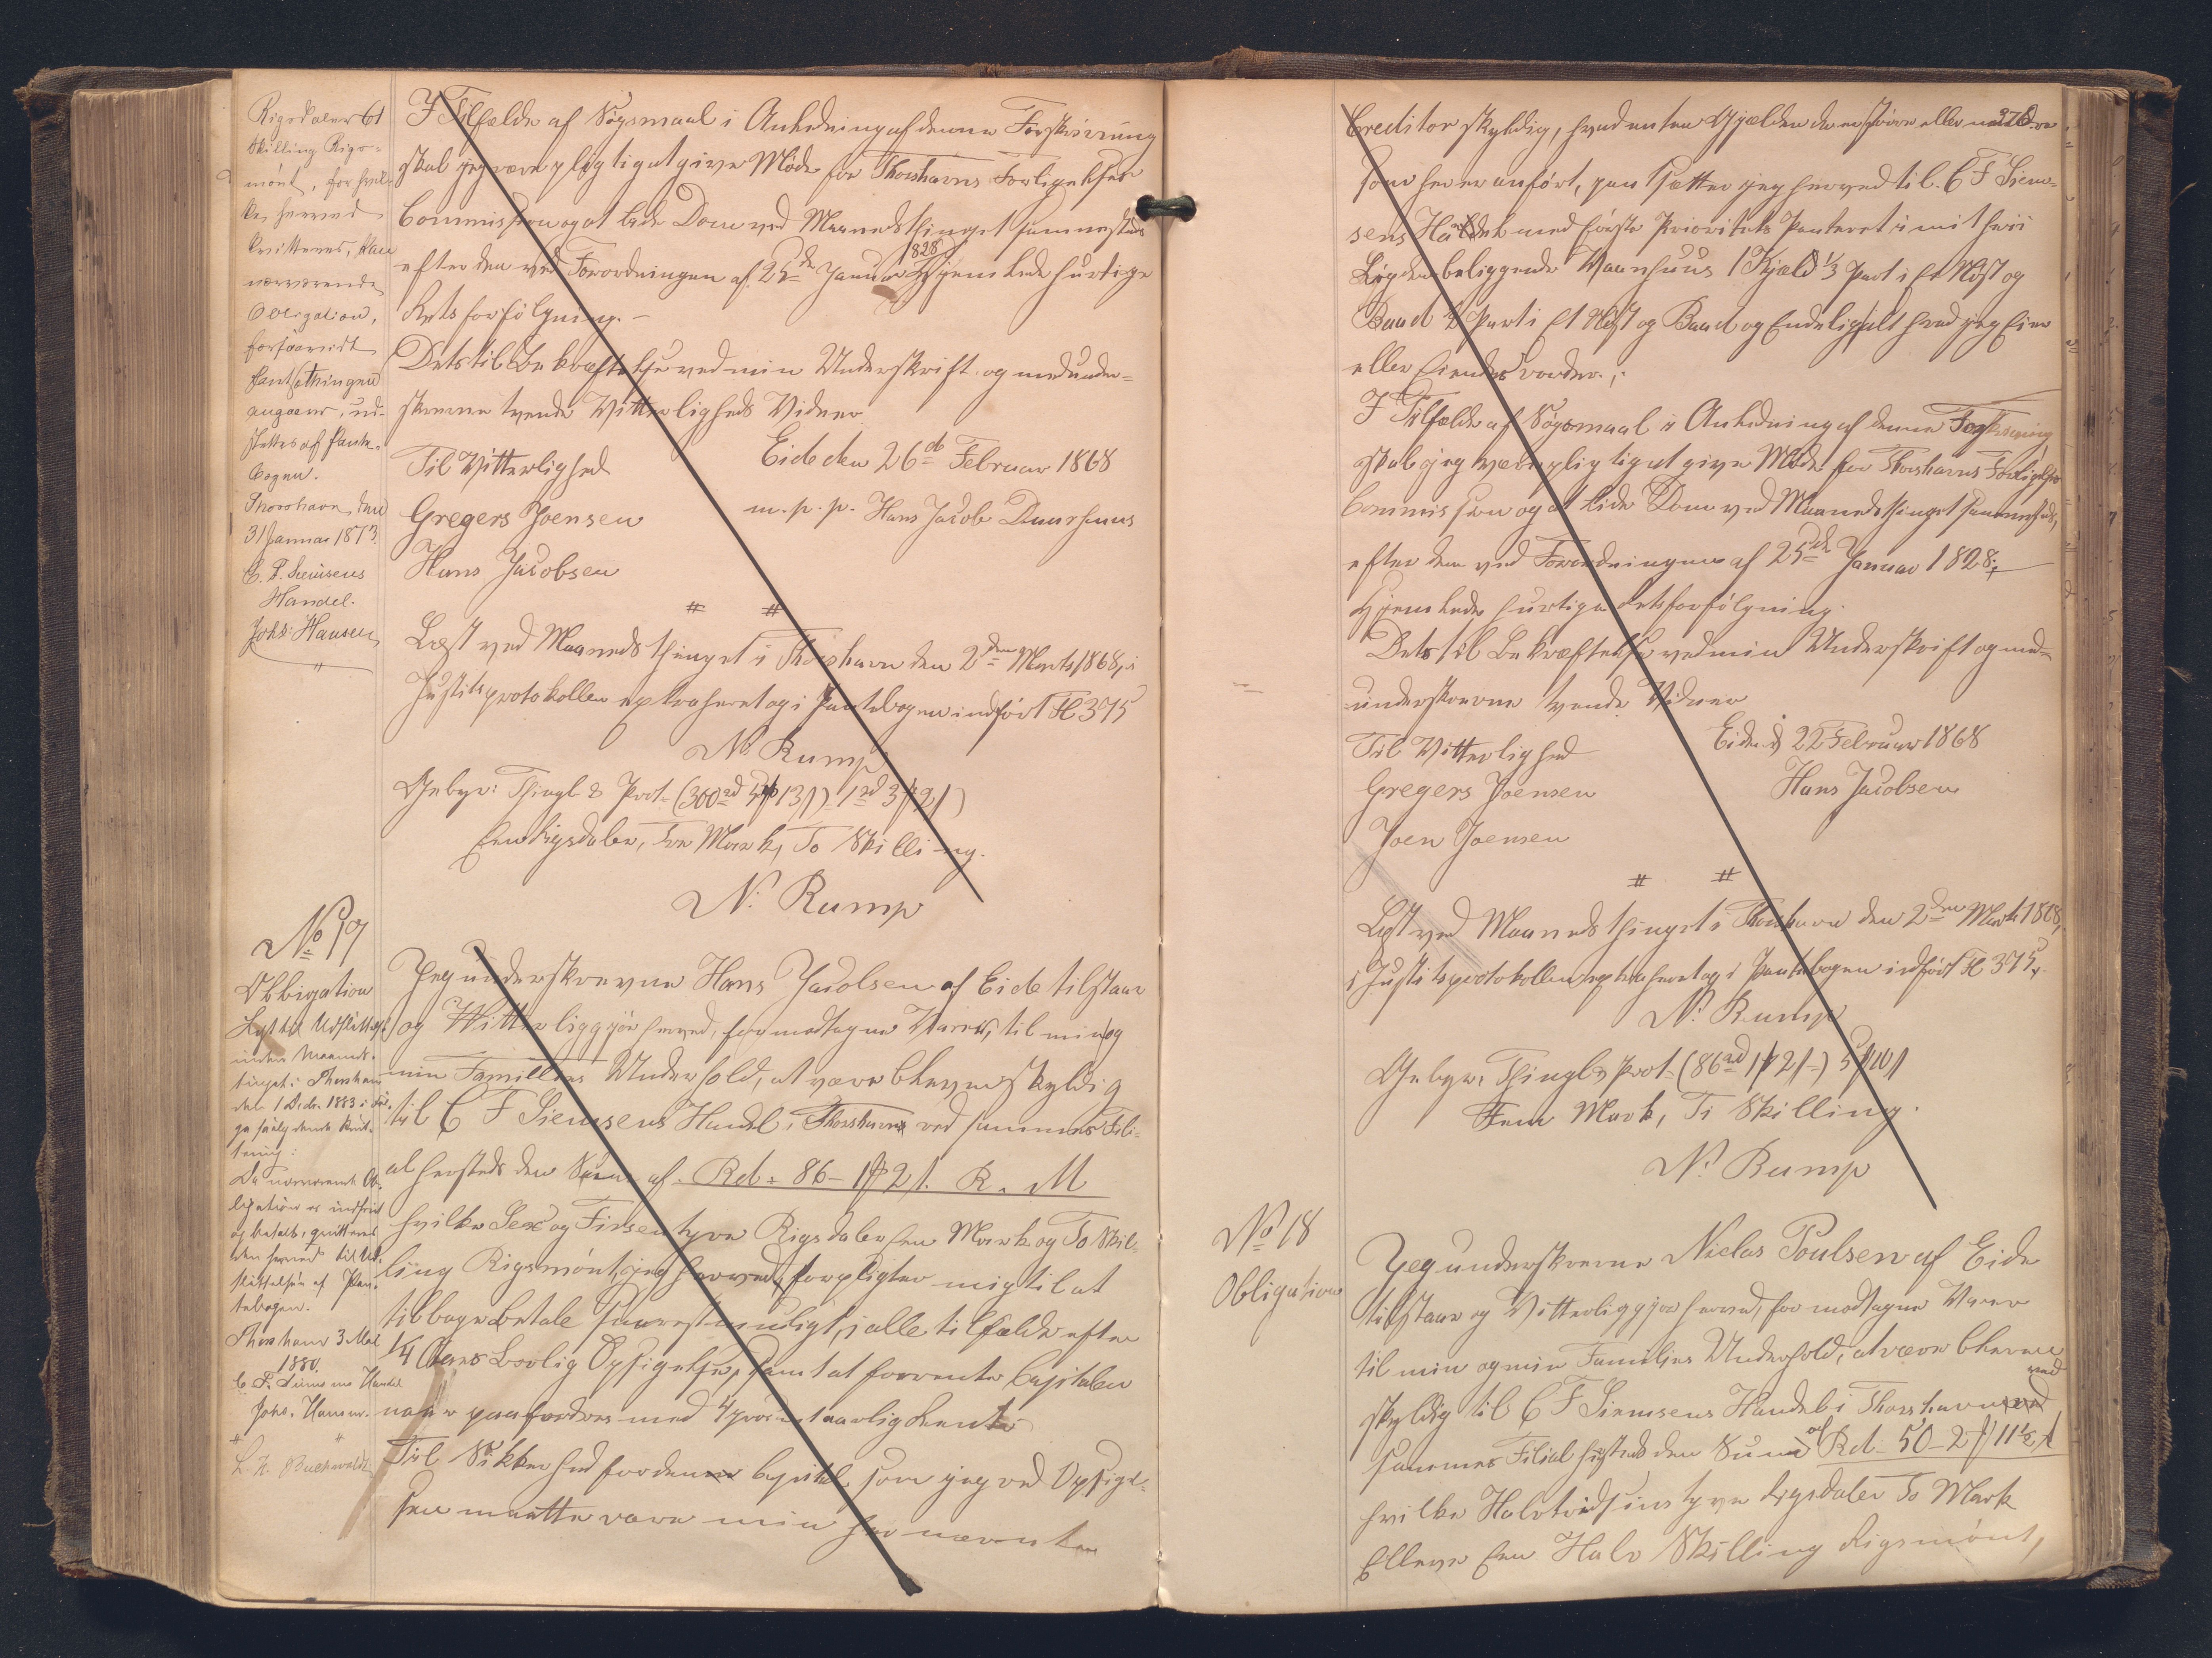 Rigsdaler 61
Skilling Rigs-
mönt, for hvil-
ke herved
kvitteres, kan
nærværende
Obligation,
forsaavidt
Panthæftingen
angaaer, ud-
slettes af Pante-
bogen.
Thorshavn, den
31 Januar 1873.
C. F. Siemsens
Handel.
Johs: Hansen
I Tilfælde af Søgsmaal i Anledning af denne Forskrivning
skal jeg være pligtig at give Møde for Thorshavns Forligelses
Commission og at lide Dom ved Maanedsthinget sammesteds
efter den ved Forordningen af 25de Januar 1828 hjemlede hurtige
Retsforfölgning.-
Dets til Bekræftelse ved min Underskrift og medunder-
skrevne tvende Vitterligheds Vidner
Eide den 26de Februar 1868
Til Vitterlighed
m. p. p. Hans Jacob
Gregers Joensen
Hans Jacobsen
Læst ved Maanedsthinget i Thorshavn den 2den Marts 1868, i
Justitsprotokollen extraheret og i Pantebogen indført Fl 375
N. Rump
Gebyr: Thingl & Prot. (300rd 13ß) 1rd 3 2ß
Een Rigsdaler, Tre Mark, To Skilling.
N. Rump
No 17
Obligation
Lyst til Udslettelse
inden Maaneds-
tinget i Thorshavn
den 1 Decbr. 1883 i føl-
ge saalydende Kvit-
tering:
Da nærværende Ob-
ligation er indfriet
og betalt, qvitteres
den herved til Ud-
slettelse af Pan-
tebogen.
Thorshavn 3 Mai
1880.
C. F. Siemsens Handel
Johs. Hansen.
Buchwaldt
Jeg underskrevne Hans Jacobsen af Eide tilstaar
og Vitterliggjør herved, for modtagne Varer, til min og
min Families Underhold, at være bleven skyldig
til C F Siemsens Handel i Thorshavn ved sammes Fili-
al hersteds den Sum af Rd. 86 - 1 2ß. R. M
hvilke Sex og Firsentyve Rigsdaler Een Mark og To Skil-
ling Rigsmönt, jeg herved forpligter mig til at
tilbagebetale snarest muligt, i alle tilfælde efter
1/4 Aars Lovlig Opsigelse, samt at forrente Capitalen
naar paafordres med 4 procent aarlig Rente
Til Sikkerhed for denne Capital som jeg ved Opsigel-
sen maatte være min hernævnte
376.
Creditor skyldig, hvad enten Gjælden da er større eller mindre
som her er anført, pantsætter jeg herved til C F Siem-
sens Handel med første Prioritets Panteret i mit her i
Bygden beliggende Vaanhuus 1 Kjæld 1/3 Part i et Nøst og
Baad Part i Et Nøst og Baad og Endelig alt hvad jeg Eier
eller Eiendes vorder.
I Tilfælde af Søgsmaal i Anledning af denne Forskrivning
skal jeg være pligtig at give Møde for Thorshavns Forligelses
Commission og at lide Dom ved Maanedsthinget sammesteds,
efter den ved Forordningen af 25de Januar 1828,
hjemlede hurtige Retsforfölgning.
Dets til Bekræftelse ved min Underskrift og med-
underskrevne tvende Vidner
Eide d 22 Februar 1868
Til Vitterlighed
Hans Jacobsen
Gregers Joensen
Joen Joensen
Læst ved Maanedsthinget i Thorshavn den 2den Marts 1868,
i Justitsprotokollen extraheret og i Pantebogen indført Fl 375,
N. Rump
Gebyr, Thingl & Prot. (86rd 1 2ß) 5 10ß
Fem Mark, Ti Skilling.
N. Rump
No 18
Obligation
Jeg underskrevne Niclas Poulsen af Eide
tilstaar og Vitterliggjør herved, for modtagne Varer
til min og min Families Underhold, at være bleven
skyldig til C F Siemsens Handel i Thorshavn ved
sammes Filial hersteds den Sum af Rd. 50 - 2 11½ ß
hvilke Halvtredsinstyve Rigsdaler To Mark
Elleve Een Halv Skilling Rigsmönt,